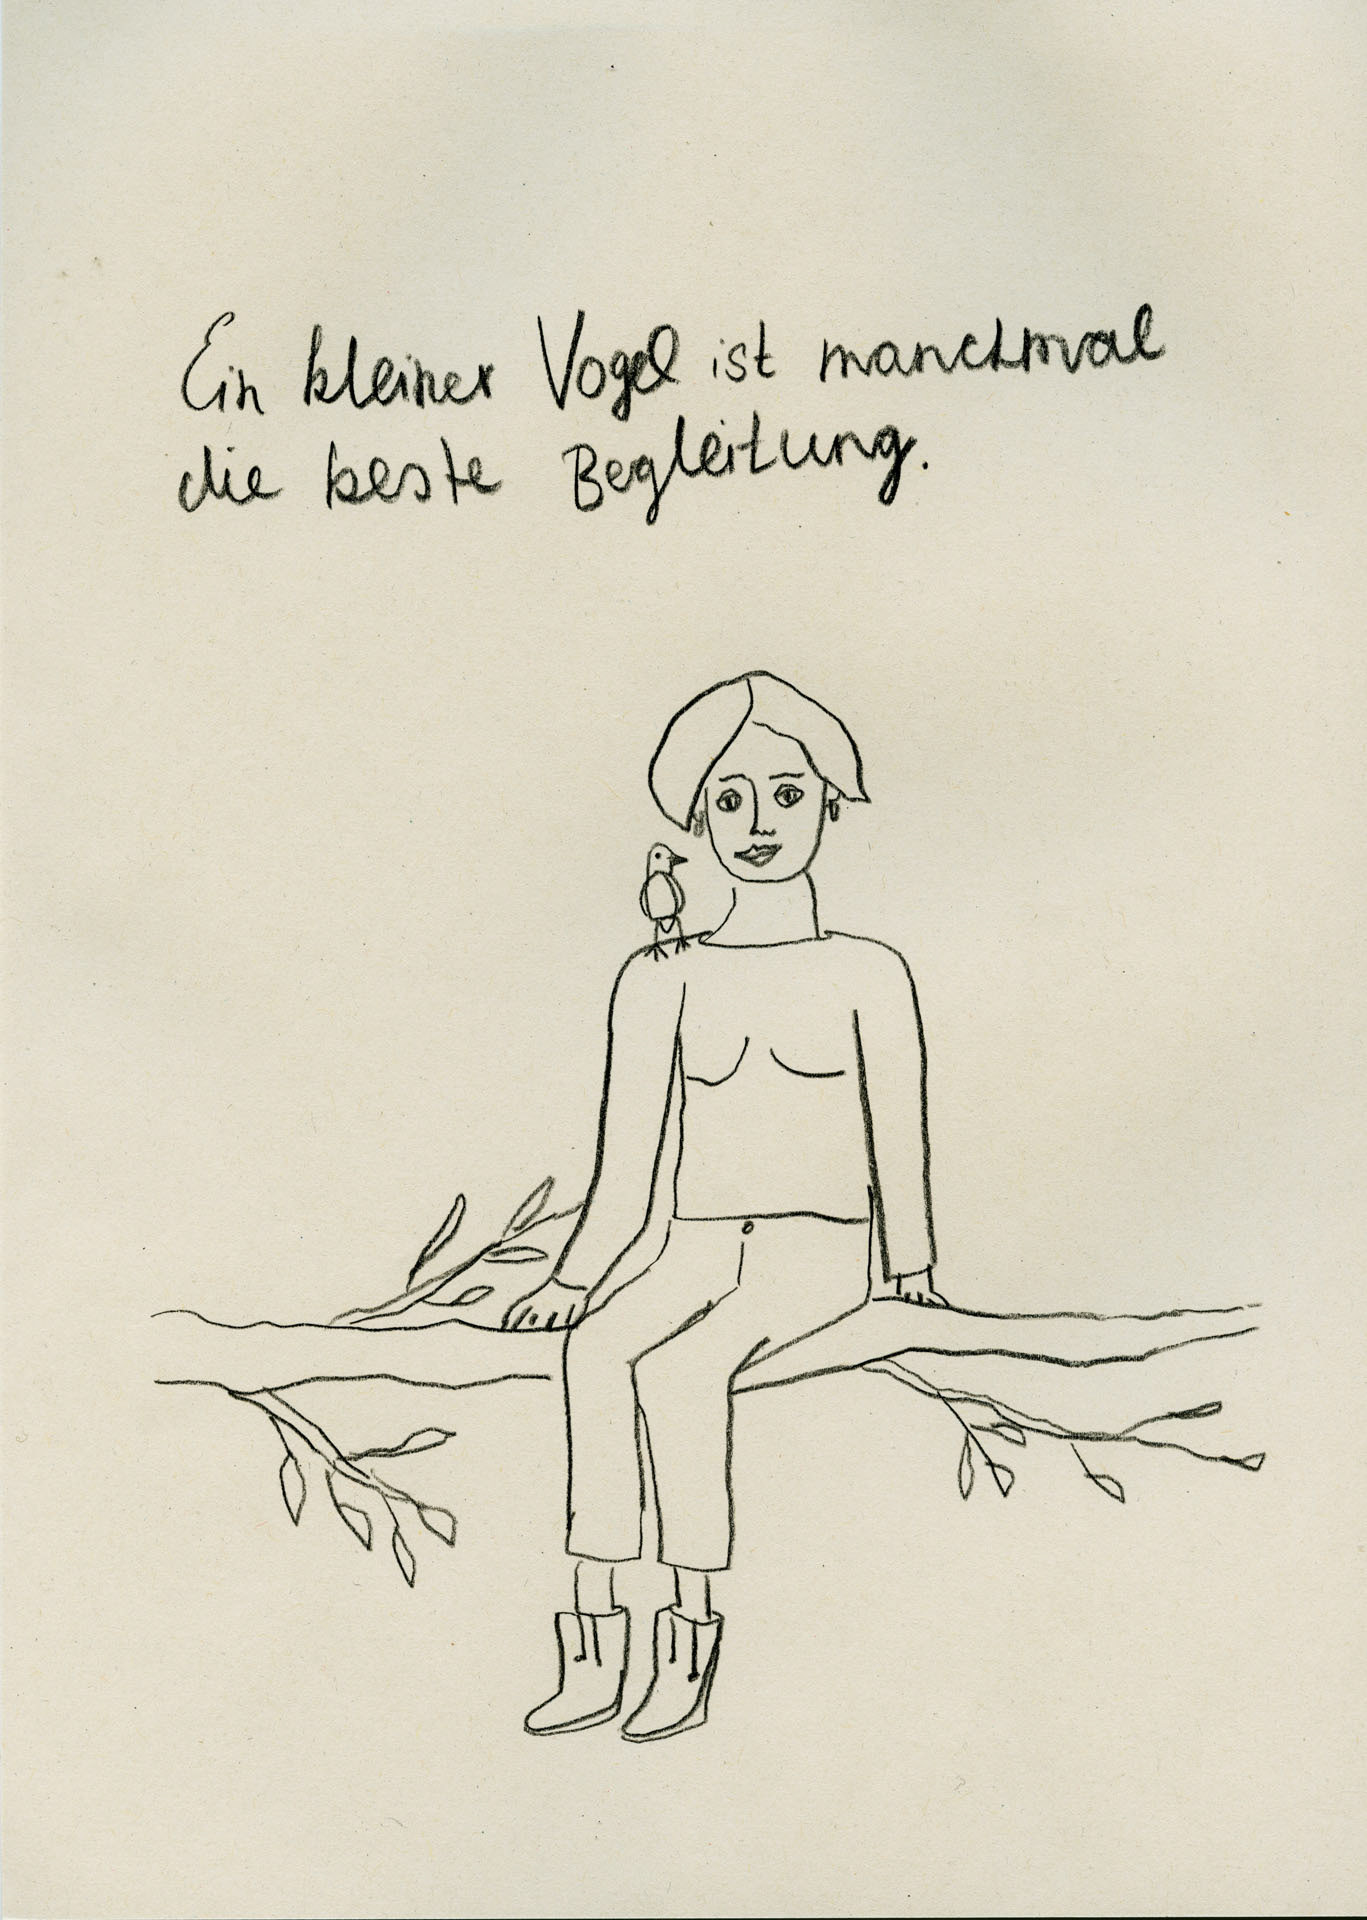 Ein kleiner Vogel ist manchmal
die beste Begleitung.